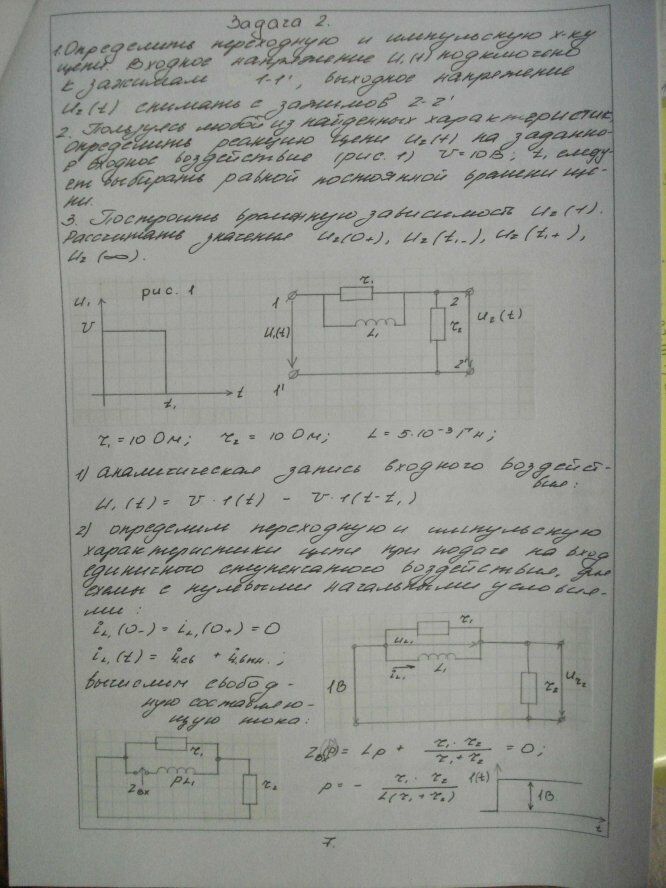 Задача 2.
1. Определить переходную и импульсную х-ку
цепи. Входное напряжение U₁(t) подключено
к зажимам 1-1', выходное напряжение
U₂(t) снимать с зажимов 2-2'
2. Пользуясь любой из найденных характеристик,
определить реакцию цепи U₂(t) на заданно-
е входное воздействие (рис. 1) V=10В; t₁ следу-
ет выбирать равной постоянной времени це-
пи.
3. Построить временную зависимость U₂(t).
Рассчитать значение U₂(0+), U₂(t₁-), U₂(t₁+),
U₂(∞).
U₁ рис. 1
V
t₁ t
1 r₁ 2
U₁(t) L₁ r₂ U₂(t)
1' 2'
r₁ = 10 Ом; r₂ = 10 Ом; L = 5·10⁻³ Гн;
1) аналитическая запись входного воздейст-
вия:
U₁(t) = V · 1(t) - V · 1(t-t₁)
2) определим переходную и импульсную
характеристики цепи при подаче на вход
единичного ступенчатого воздействия, для
схемы с нулевыми начальными условия-
ми:
i_L₁(0-) = i_L₁(0+) = 0
i_L₁(t) = i_св + i_вын.;
вычислим свобод-
ную составляю-
щую тока:
r₁
U_L₁
L₁
i_L₁
1В r₂ U_r₂
r₁
Z_вх pL₁ r₂
Z_вх(p) = Lp + r₁·r₂/(r₁+r₂) = 0;
p = - r₁·r₂/(L(r₁+r₂))
1(t)
1В
t
7.